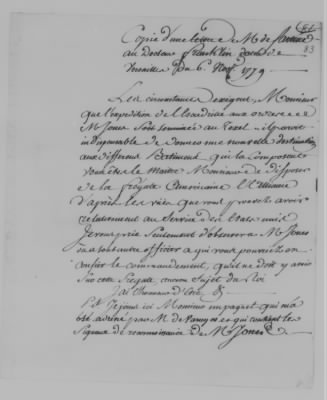 61
83
Copie d'une lettre de M. de Sartine
au Docteur franklin datée de
Versailles Du 6. Nov. 1779
Les circonstances exigent, Monsieur
que l'expedition de l'escadre aux ordres de
M. Jones soit terminée au Texel il paroit
indispensable de donner une nouvelle destination
aux differens Batimens qui la Composent
Vous êtes le Maitre Monsieur de disposer
de la fregate Americaine l'Alliance
d'après les vües que vous pouvés avoir
relativement au Service des Etats unis
Je me prie Seulement d'observer a M. Jones
ou a tout autre officier a qui vous pourriés en
confier le commandement, qu'il ne doit y avoir
Sur cette fregate aucun Sujet du Roi
J'ai l'honneur d'Etre &
P.S. Je joins ici Monsieur un paquet qui m'a
été adressé par M. de et qui contient les
Signaux de reconnoissance de M. Jones